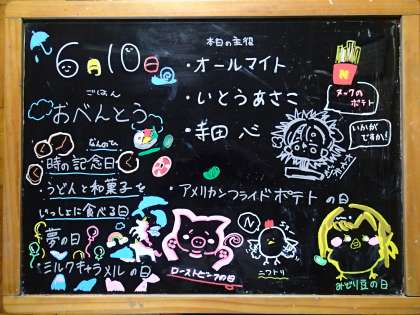 6月10日
ごはん
おべんとう
なんのひ
・時の記念日
・うどんと和菓子を
いっしょに食べる日
・夢の日
・ミルクキャラメルの日
本日の主役
・オールマイト
・いとうあさこ
・寺田 心
・アメリカンフライドポテトの日
N
ヌックの
ポテト
いかが
ですか!
ローストピッグの日
N
ニワトリ
みどり豆の日